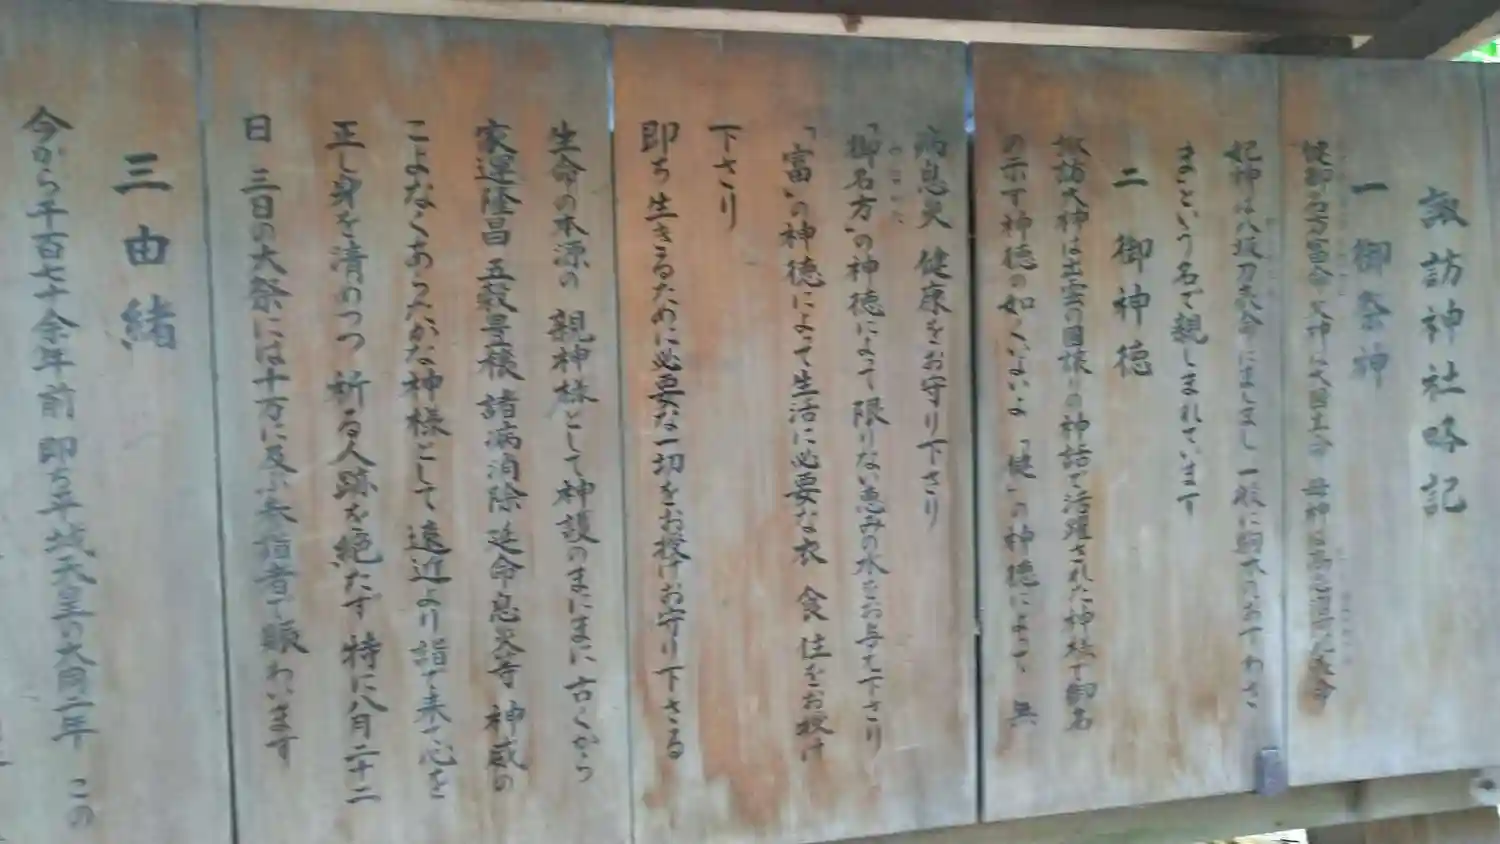 諏訪神社略記
一 御祭神
健御名方富命 父神は大国主命 母神は高志沼河姫命
妃神は八坂刀売命にましまし 一般に御衣のおすわさ
まという名で親しまれています
二 御神徳
諏訪大神は出雲の国譲りの神話で活躍された神様で御名
の示す神徳の如くいよいよ「健」の神徳によって 無
病息災 健康をお守り下さり
「御名方」の神徳によって限りない恵みの水をお与え下さり
「富」の神徳によって生活に必要な衣 食 住をお授け
下さり
即ち 生きるために必要な一切をお授けお守り下さる
生命の本源の 親神様として神護のまにまに古くから
家運隆昌 五穀豊穣 諸病消除 延命息災等 神威の
こよなくあらたかな神様として遠近より詣で来て心を
正し身を清めつつ 祈る人跡を絶たず 特に八月二十二
日 三日の大祭には十万に及ぶ参詣者で賑わいます
三 由緒
今から千百七十余年前 即ち平城天皇の大同二年 この